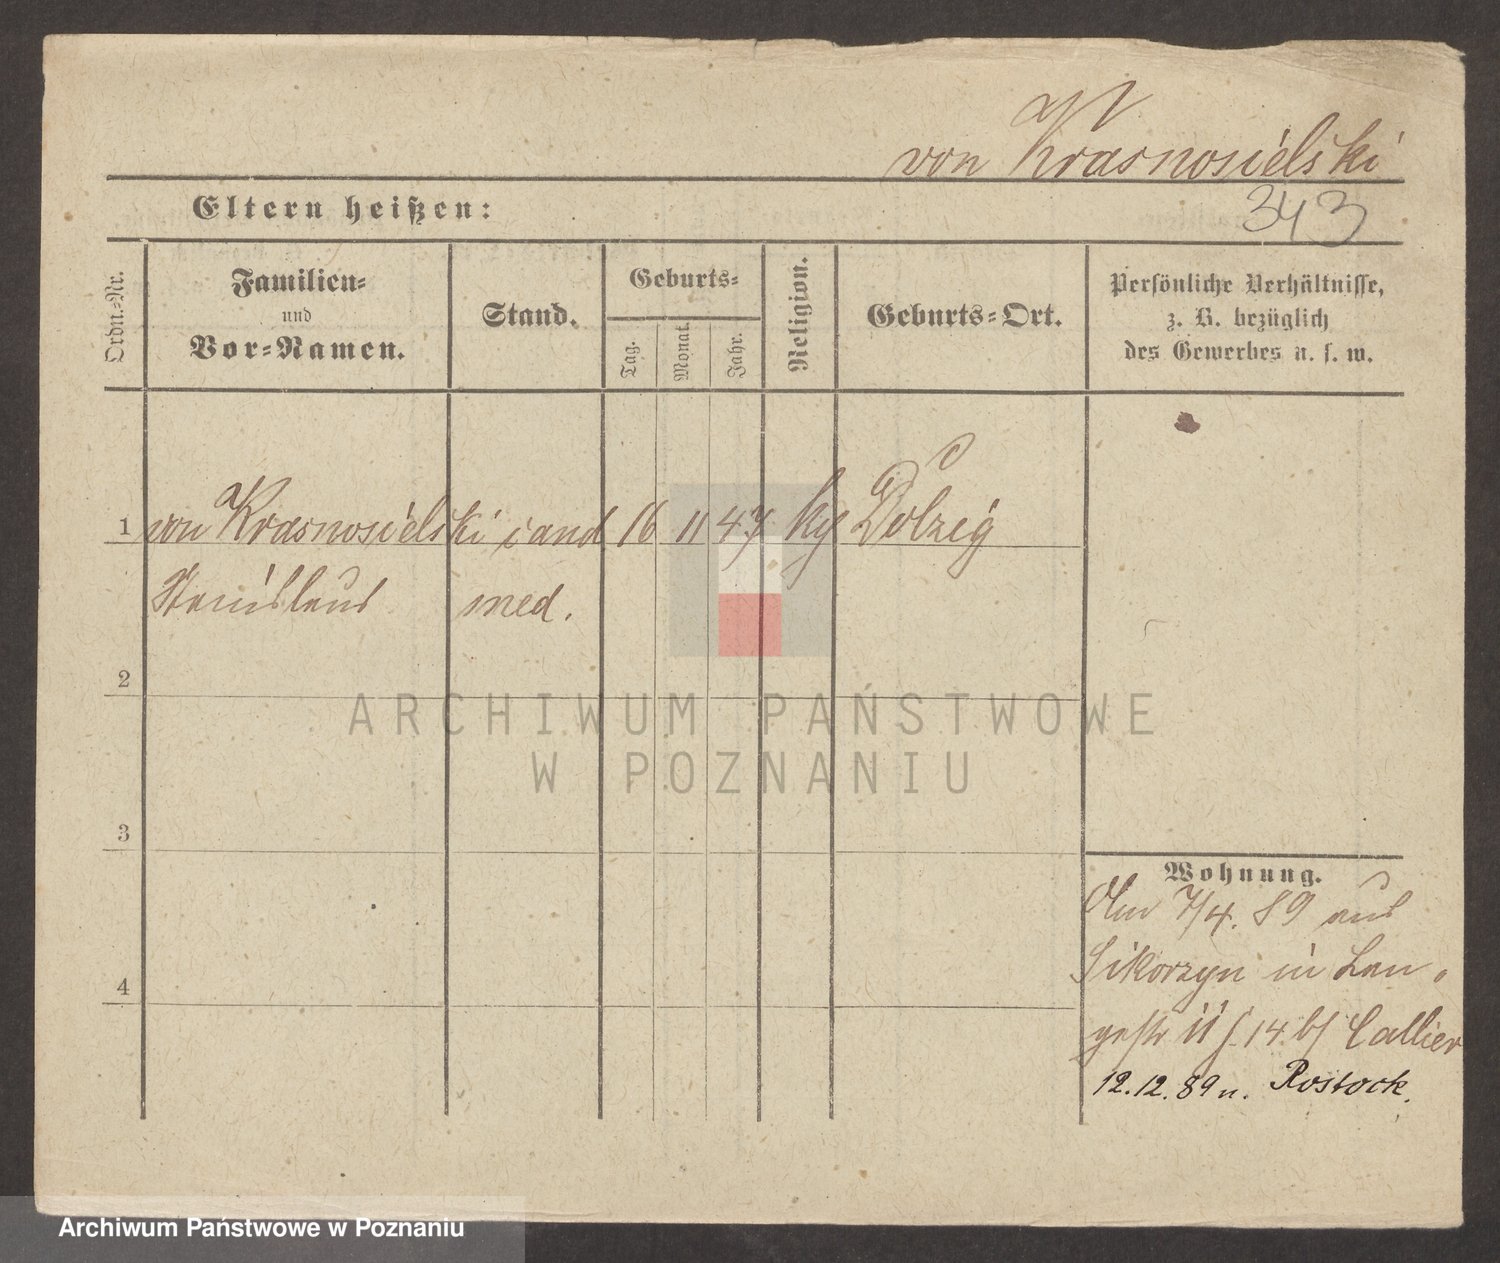 von Krasnosielski
343
Eltern heißen:
Ordn.-Nr.
Familien-
und
Vor-Namen.
Stand.
Geburts-
Tag.
Monat.
Jahr.
Religion.
Geburts-Ort.
Persönliche Verhältnisse,
z. B. bezüglich
des Gewerbes u. s. w.
1 von Krasnosielski cand 16 11 47 Dolzig
Stanislaus med.
2
3
4
Wohnung.
Am 7/4. 89 aus
Sikorzyn in Lan-
gestr 11 14 b/ Callier
12.12.89 n. Rostock.
ARCHIWUM PAŃSTWOWE
W POZNANIU
Archiwum Państwowe w Poznaniu